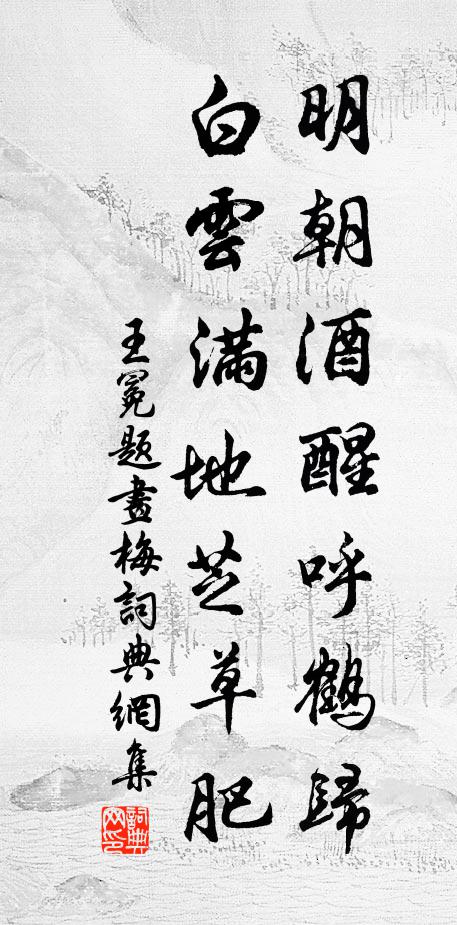 明朝酒醒呼鶴歸
白雲滿地芝草肥
王冕題畫梅詞典網集
詞典網印